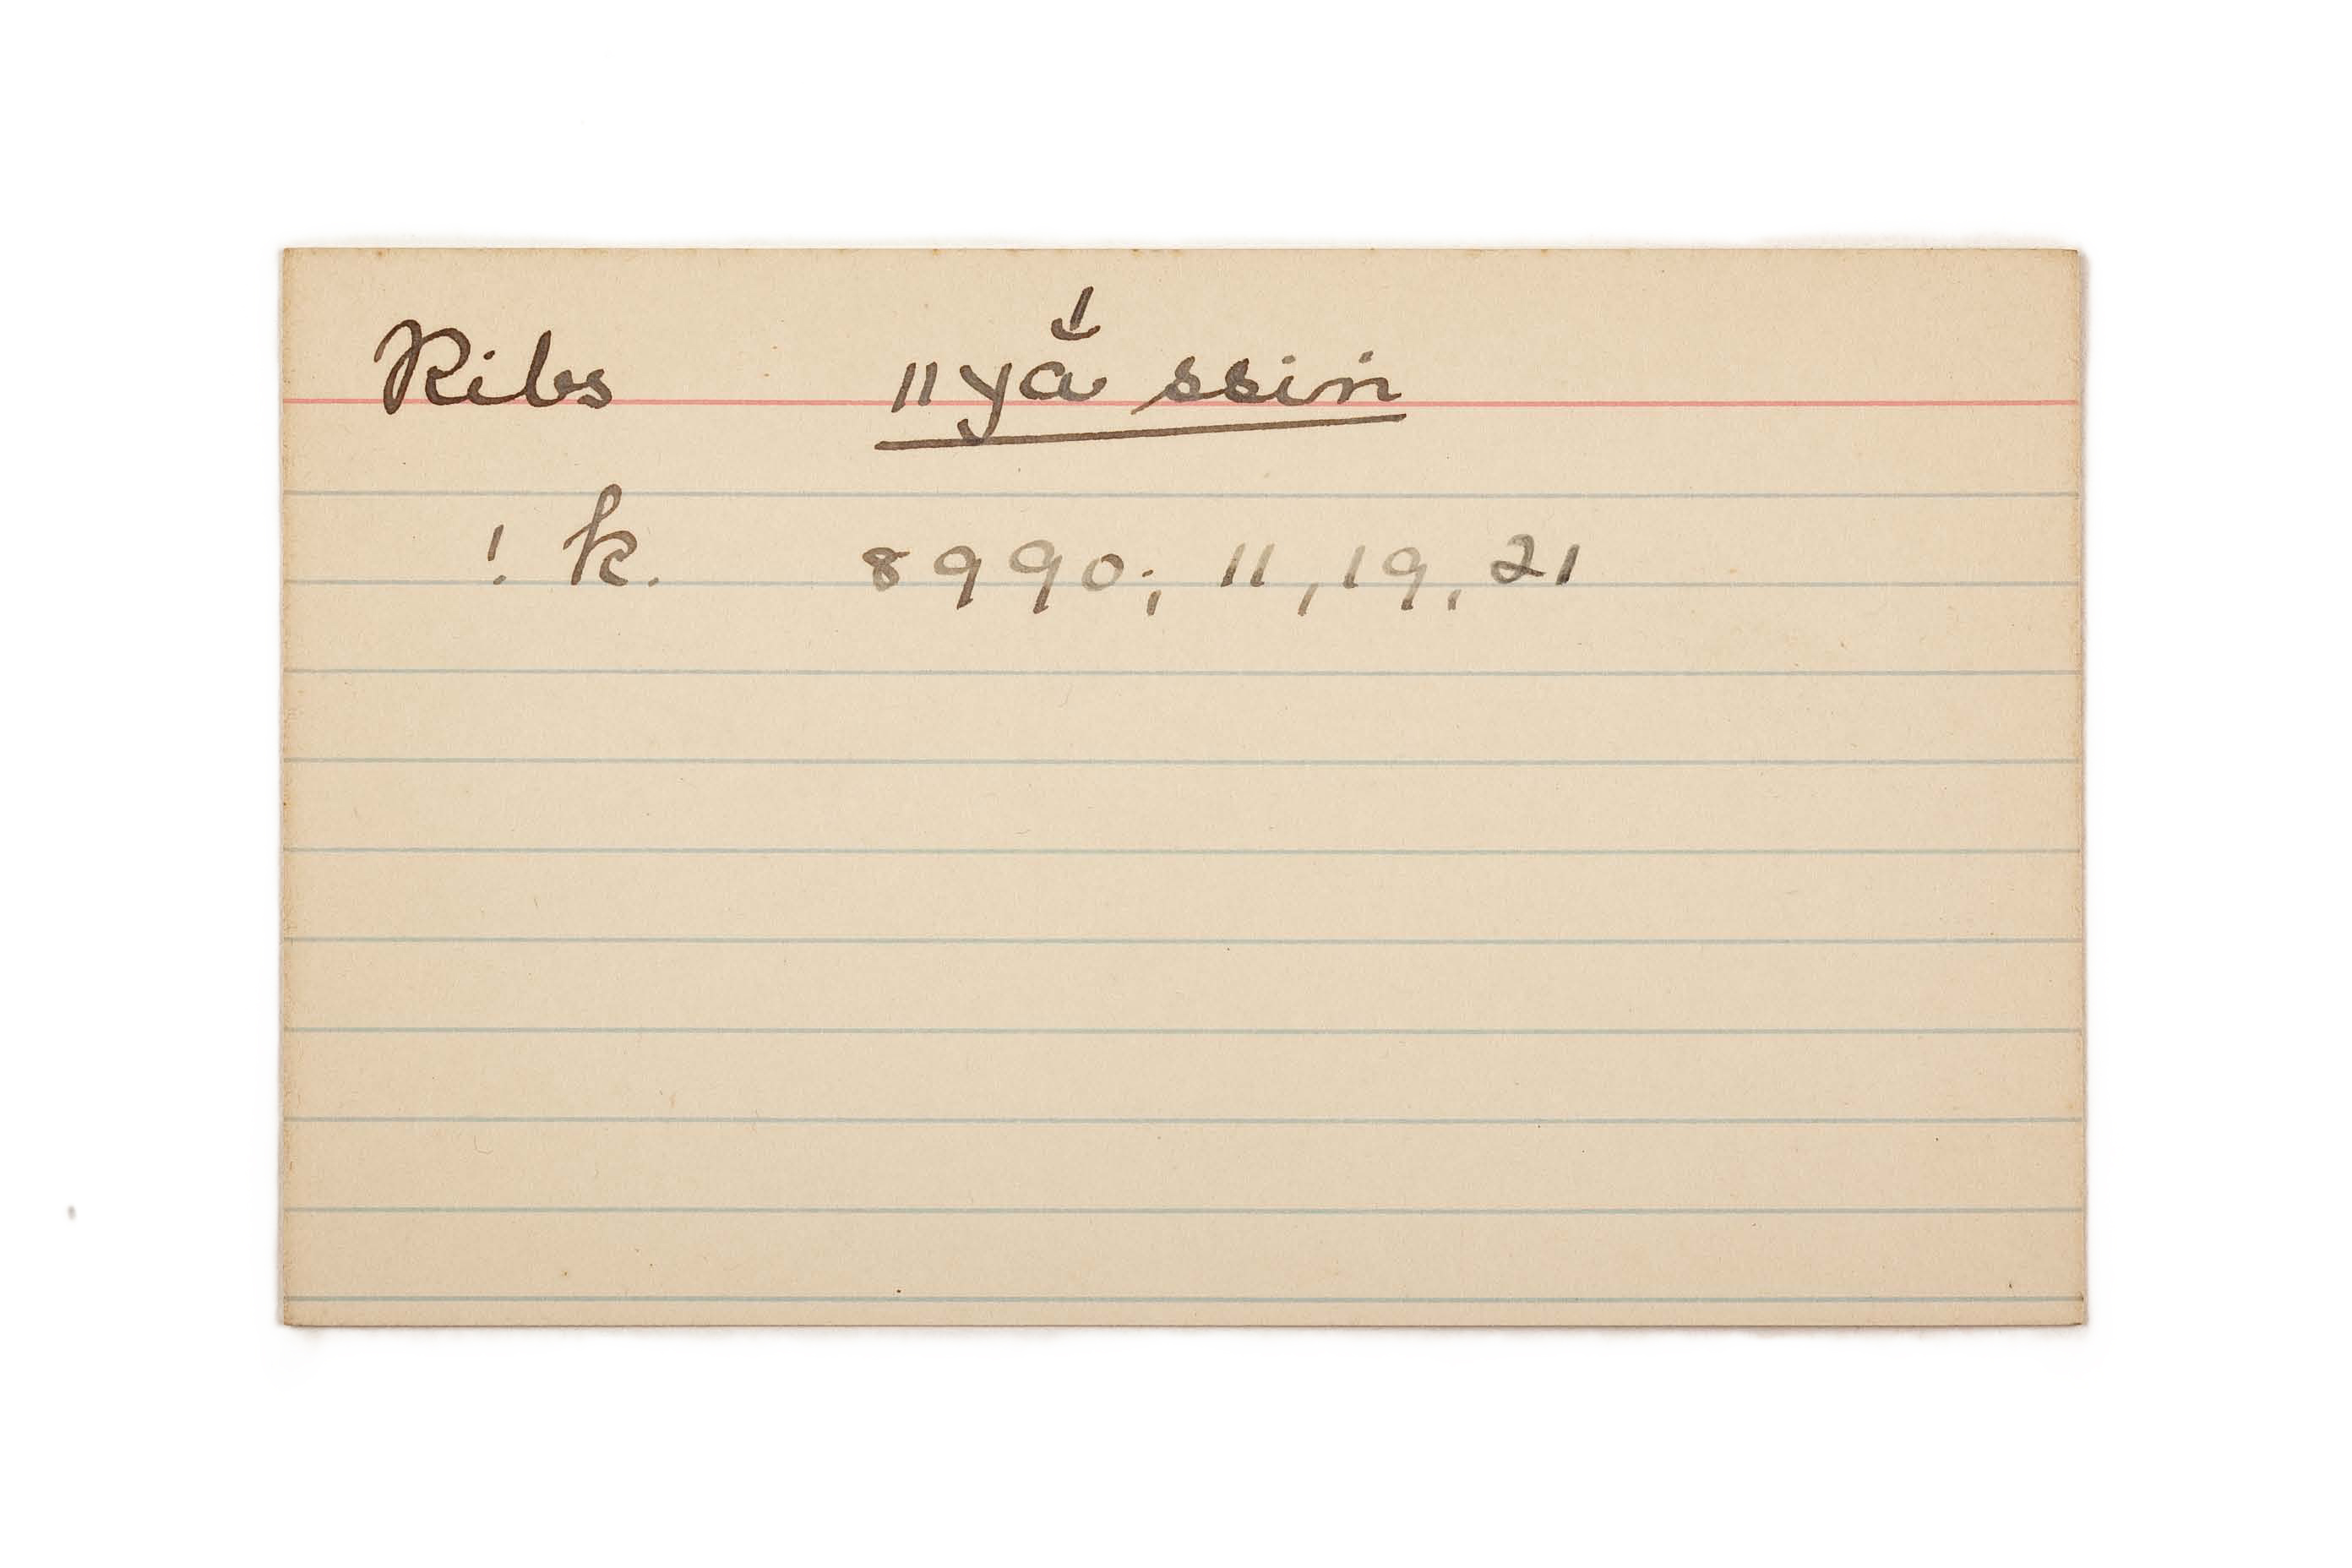 Ribs ǁyā̆́ ssin
! k. 8990; 11, 19, 21